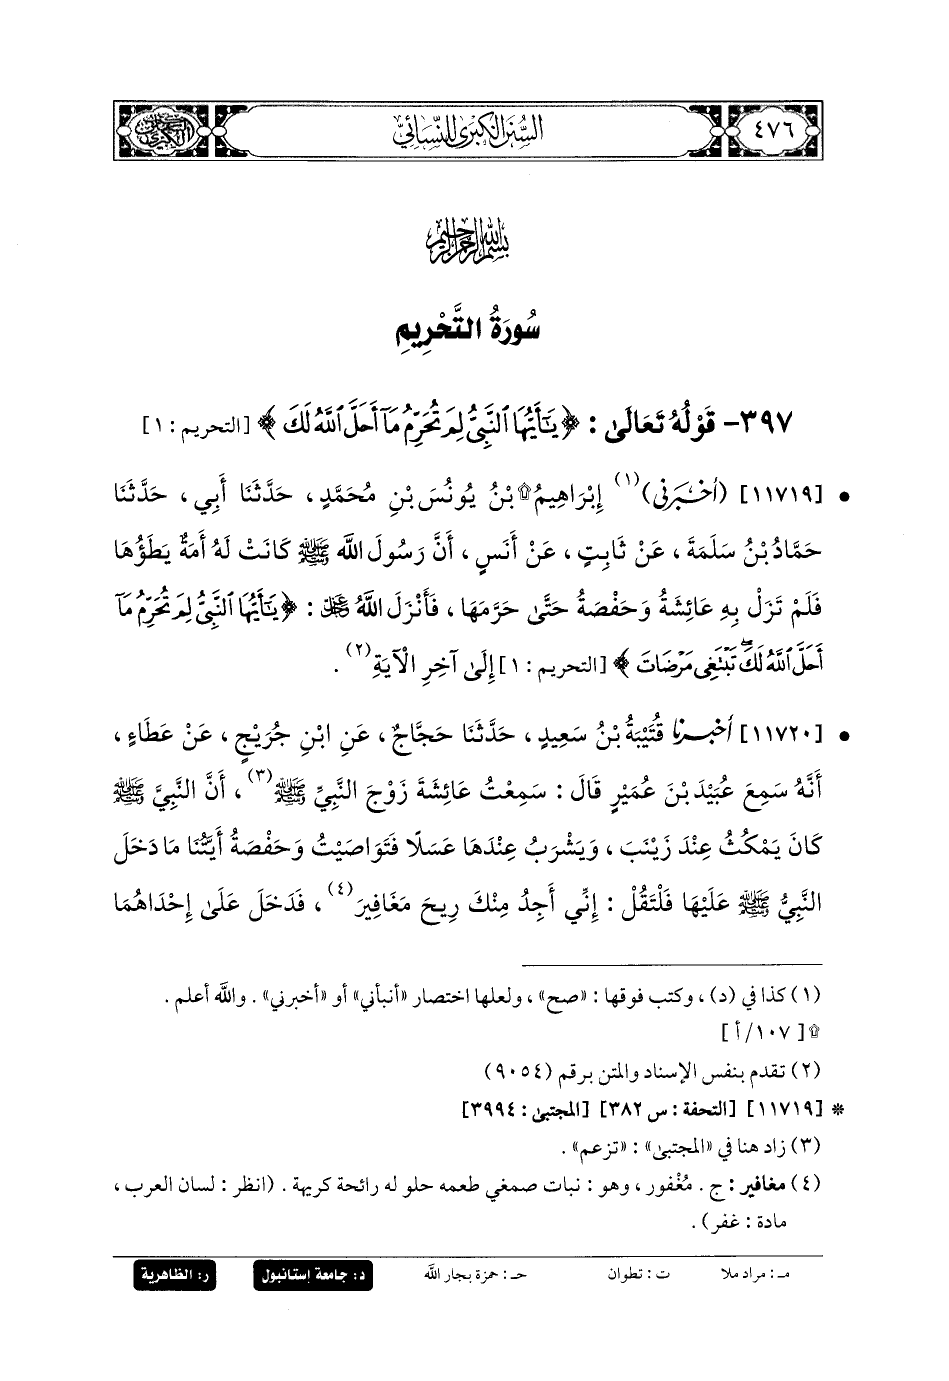 ٤٧٦
السُّنَنُ الكُبْرَى لِلنَّسَائِيِّ
بِسْمِ اللَّهِ الرَّحْمَنِ الرَّحِيمِ
سُورَةُ التَّحْرِيمِ
٣٩٧- قَوْلُهُ تَعَالَىٰ : ﴿ يَٰٓأَيُّهَا ٱلنَّبِىُّ لِمَ تُحَرِّمُ مَآ أَحَلَّ ٱللَّهُ لَكَ ﴾ [التحريم : ١]
• [١١٧١٩] (أَخْبَرَنِي)(١) إِبْرَاهِيمُ۩ بْنُ يُونُسَ بْنِ مُحَمَّدٍ ، حَدَّثَنَا أَبِي ، حَدَّثَنَا
حَمَّادُ بْنُ سَلَمَةَ ، عَنْ ثَابِتٍ ، عَنْ أَنَسٍ ، أَنَّ رَسُولَ اللَّهِ ﷺ كَانَتْ لَهُ أَمَةٌ يَطَؤُهَا
فَلَمْ تَزَلْ بِهِ عَائِشَةُ وَحَفْصَةُ حَتَّىٰ حَرَّمَهَا ، فَأَنْزَلَ اللَّهُ ﷿ : ﴿ يَٰٓأَيُّهَا ٱلنَّبِىُّ لِمَ تُحَرِّمُ مَآ
أَحَلَّ ٱللَّهُ لَكَ ۖ تَبْتَغِى مَرْضَاتَ ﴾ [التحريم : ١] إِلَىٰ آخِرِ الْآيَةِ(٢) .
• [١١٧٢٠] أَخْبَرَنَا قُتَيْبَةُ بْنُ سَعِيدٍ ، حَدَّثَنَا حَجَّاجٌ ، عَنِ ابْنِ جُرَيْجٍ ، عَنْ عَطَاءٍ ،
أَنَّهُ سَمِعَ عُبَيْدَ بْنَ عُمَيْرٍ قَالَ : سَمِعْتُ عَائِشَةَ زَوْجَ النَّبِيِّ ﷺ(٣) ، أَنَّ النَّبِيَّ ﷺ
كَانَ يَمْكُثُ عِنْدَ زَيْنَبَ ، وَيَشْرَبُ عِنْدَهَا عَسَلًا فَتَوَاصَيْتُ وَحَفْصَةُ أَيَّتُنَا مَا دَخَلَ
النَّبِيُّ ﷺ عَلَيْهَا فَلْتَقُلْ : إِنِّي أَجِدُ مِنْكَ رِيحَ مَغَافِيرَ(٤) ، فَدَخَلَ عَلَىٰ إِحْدَاهُمَا
(١) كذا في (د) ، وكتب فوقها : «صح» ، ولعلها اختصار «أنبأني» أو «أخبرني» . والله أعلم .
۩ [ ١٠٧/ أ ]
(٢) تقدم بنفس الإسناد والمتن برقم (٩٠٥٤)
* [١١٧١٩] [التحفة : س ٣٨٢] [المجتبىٰ : ٣٩٩٤]
(٣) زاد هنا في «المجتبىٰ» : «تزعم» .
(٤) مغافير : ج . مُغْفور ، وهو : نبات صمغي طعمه حلو له رائحة كريهة . (انظر : لسان العرب ،
مادة : غفر) .
مـ : مراد ملا ت : تطوان حـ : حمزة بجار الله د: جامعة إستانبول ر: الظاهرية